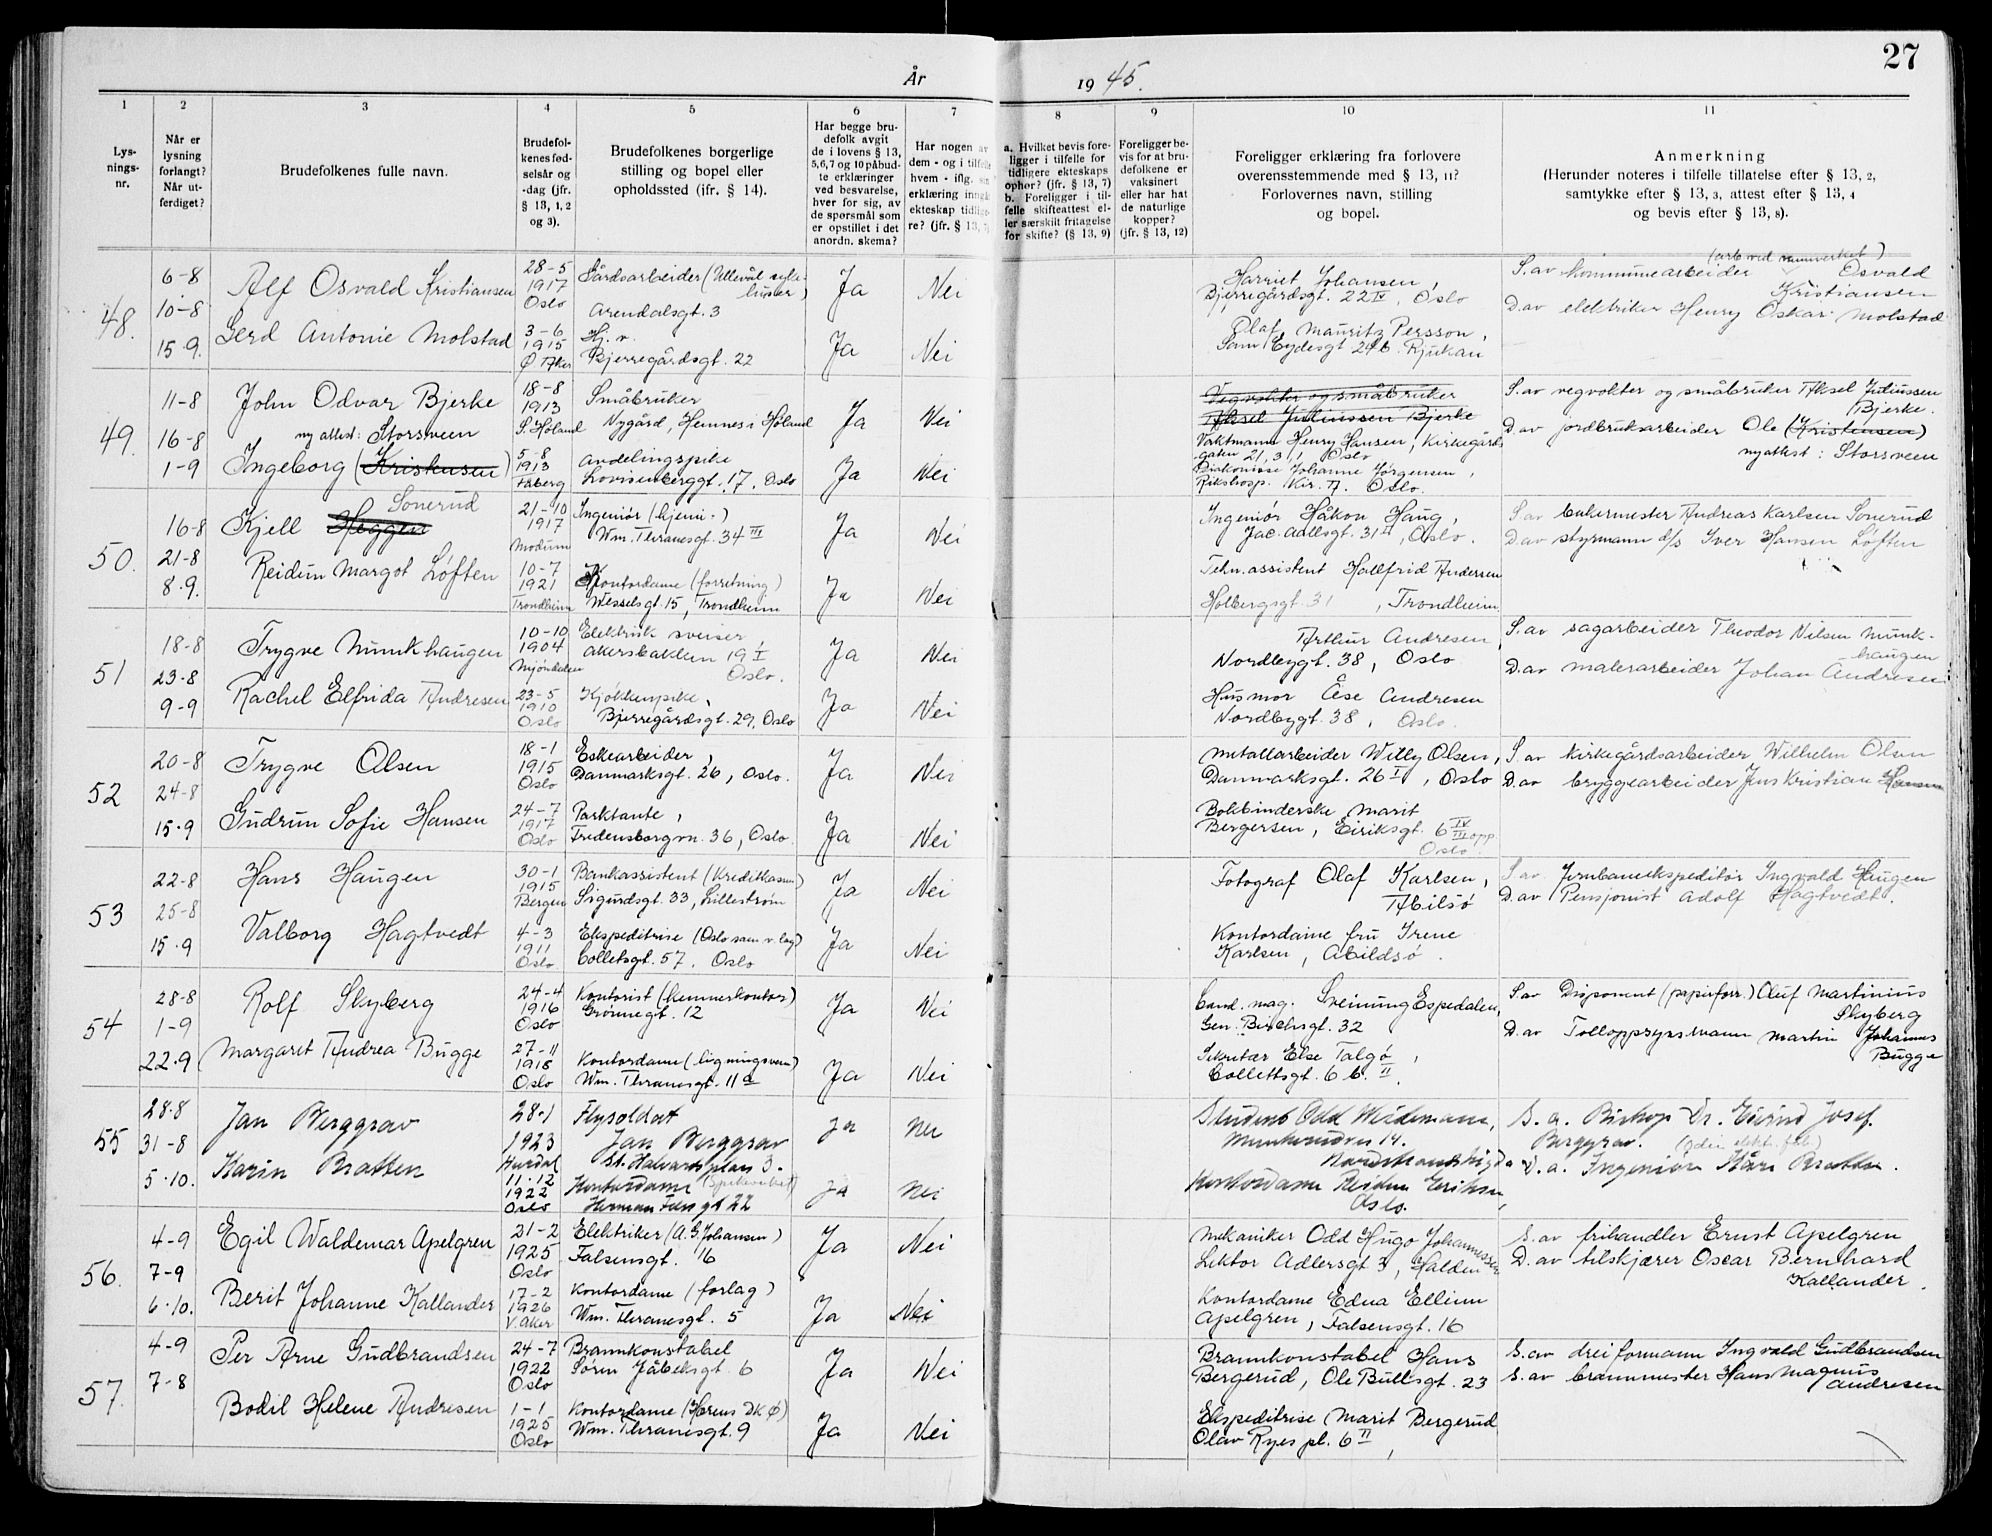 27
År 1945.
1 2 3 4 5 6 7 8 9 10 11
Lys-
nings-
nr.
Når er
lysning
forlangt?
Når ut-
ferdiget?
Brudefolkenes fulle navn.
Brudefol-
kenes fød-
selsår og
-dag (jfr.
§ 13, 1, 2
og 3).
Brudefolkenes borgerlige
stilling og bopel eller
opholdssted (jfr. § 14).
Har begge bru-
defolk avgit
de i lovens § 13,
5,6,7 og 10 påbud-
te erklæringer
ved besvarelse,
hver for sig, av
de spørsmål som
er opstillet i det
anordn. skema?
Har nogen av
dem - og i tilfelle
hvem - iflg. sin
erklæring inngå
ekteskap tidlige-
re? (jfr. § 13, 7)
a. Hvilket bevis fore-
ligger i tilfelle for
tidligere ekteskaps
ophør? (jfr. § 13, 7)
b. Foreligger i til-
felle skifteattest el-
ler særskilt fritagelse
for skifte? (§ 13, 9)
Foreligger be-
vis for at bru-
defolkene er
vaksinert
eller har hat
de naturlige
kopper?
(jfr. § 13, 12)
Foreligger erklæring fra forlovere
overensstemmende med § 13, 11?
Forlovernes navn, stilling
og bopel.
Anmerkning
(Herunder noteres i tilfelle tillatelse efter § 13, 2,
samtykke efter § 13, 3, attest efter § 13, 4
og bevis efter § 13, 8).
48.
6-8
10-8
15.9.
Alf Osvald Kristiansen
Gerd Antonie Molstad
28-5
1917
Oslo
3-6
1915
Ø Aker
Gårdsarbeider (Ullevål syke-
huset)
Arendalsgt. 3
Hj. v.
Bjerregårdsgt. 22
Ja Nei
Ja Nei
Harriet Johansen,
Bjerregårdsgt. 22 IV, Oslo
Olaf Mauritz Persson,
Sam Eydesgt 246. Rjukan
(arb ved vannverket)
S. av kommunearbeider Osvald
Kristiansen
D. av elektriker Henry Oskar Molstad
49.
11-8
16-8
1-9
John Odvar Bjerke
ny attest: Storsveen
Ingeborg (Kristensen)
18-8
1913
S. Høland
5-8
1913
Fåberg
Småbruker
Nygård, Hemnes i Høland
Avdelingspike
Lovisenberggt. 17, Oslo
Ja Nei
Ja Nei
Vegvokter og småbruker
Aksel Juliussen Bjerke
Vaktmann Henry Hansen, Kirkegårds
gaten 21, 3, 1 Oslo
Diakonisse Johanne Jørgensen,
Rikshosp. Kir. A. Oslo.
S. av vegvokter og småbruker Aksel Juliussen
Bjerke.
D. av jordbruksarbeider Ole (Kristensen)
ny attest: Storsveen
50.
16-8
21-8
8.9.
Sonerud
Kjell Heggen
Reidun Margot Løften
21-10
1917
Modum
10-7
1921
Trondheim
Ingeniør (kjemi-)
Wm. Thranesgt. 34 III
Kontordame (forretning)
Wesselsgt. 15, Trondheim
Ja Nei
Ja Nei
Ingeniør Håkon Haug,
Jac. Aallsgt. 31 II, Oslo.
Tekn. assistent Hallfrid Andersen
Holbergsgt. 31, Trondheim
S. av bakermester Andreas Karlsen Sonerud
D. av styrmann d/s Iver Hansen Løften
51
18-8
23-8
9-9
Trygve Munkhaugen
Rachel Elfrida Andresen
10-10
1904
Mjøndalen
23-5
1910
Oslo
Elektrisk sveiser,
Akersbakken 19 I
Oslo.
Kjøkkenpike,
Bjerregårdsgt. 29, Oslo
Ja Nei
Ja Nei
Arthur Andresen,
Nordbygt. 38, Oslo
Husmor Åse Andresen
Nordbygt. 38, Oslo.
S. av sagarbeider Theodor Nilsen Munk-
haugen
D. av malerarbeider Johan Andresen
52
20-8
24-8
15.9
Trygve Olsen
Gudrun Sofie Hansen
18-1
1915
Oslo
24-7
1917
Oslo
Eskearbeider,
Danmarksgt. 26, Oslo.
Parktante,
Fredensborgvn. 36, Oslo
Ja Nei
Ja Nei
Metallarbeider Willy Olsen,
Danmarksgt. 26 I, Oslo
Bokbinderske Marit
Bergersen, Eiriksgt. 6 IV
III opp.
Oslo.
S. av kirkegårdsarbeider Wilhelm Olsen
D. av bryggearbeider Jens Kristian Hansen
53
22-8
25-8
15.9
Hans Haugen
Valborg Hagtvedt
30-1
1915
Bergen
4-3
1911
Oslo
Bankassistent (Kreditkassen)
Sigurdsgt. 33, Lillestrøm
Ekspeditrise (Oslo sam. v. lag)
Colletsgt. 57. Oslo
Ja Nei
Ja Nei
Fotograf Olaf Karlsen,
Abilsø
Kontordame fru Irene
Karlsen, Abildsø.
S. av Jernbaneekspeditør Ingvald Haugen
D. av Pensjonist Adolf Hagtvedt.
54
28-8
1-9
22.9
Rolf Skyberg
Margaret Andrea Bugge
24-4
1916
Oslo
27-11
1918
Oslo
Kontorist (kemnerkontor)
Grønnegt. 12
Kontordame (ligningsvesen)
Wm. Thranesgt. 11 c
Ja Nei
Ja Nei
Cand. mag. Sveinung Espedalen,
Gen. Birchsgt. 32
Sekretær Else Talgø,
Collettsgt. 6 b. II.
S. av Disponent (papirforr.) Oluf Martinius
Skyberg
D. av Tolloppsynsmann Martin Johannes
Bugge
55
28.8
31-8
5.10.
Jan Berggrav
Karin Bratten
28.1
1923
Hurdal
11.12
1922
Oslo
Flysoldat
Jan Berggrav
St. Halvards plass 3.
Kontordame
Herman Foss gt 22
Ja Nei
Ja Nei
Student Odd Weidemann,
Munkerudvn 14.
Nordstrandshøgda
Kontordame Reidun Eriksen,
Oslo.
S. a. Biskop Dr. Eivind Josef.
Berggrav.
D. a. Ingeniør Kåre Bratten.
56.
4-9
7-9
6.10.
Egil Waldemar Apelgren
Berit Johanne Kallander
21-2
1925
Oslo
17-2
1926
V. Aker
Elektriker (A. G. Johansen)
Falsensgt. 16
Kontordame (forlag)
Wm. Thranesgt. 5
Ja Nei
Ja Nei
Mekaniker Odd Hugo Johannessen
Lektor Adlersgt 3, Halden
Kontordame Edna Ellinn
Apelgren, Falsensgt. 16
S. av frihandler Ernst Apelgren
D. av tilskjærer Oscar Bernhard
Kallander.
57.
4-9
7-8
Per Arne Gudbrandsen
Bodil Helene Andresen
24-7
1922
Oslo
1-1
1925
Oslo
Brannkonstabel
Søren Jåbeksgt. 6
Kontordame (Hærens DK Ø)
Wm. Thranesgt. 9
Ja Nei
Ja Nei
Brannkonstabel Hans
Bergerud, Ole Bullsgt. 23
Ekspeditrise Marit Bergerud
Olav Ryes pl. 6 II,
S. av dreiformann Ingvald Gudbrandsen
S. av brannmester Hans Magnus
Andresen